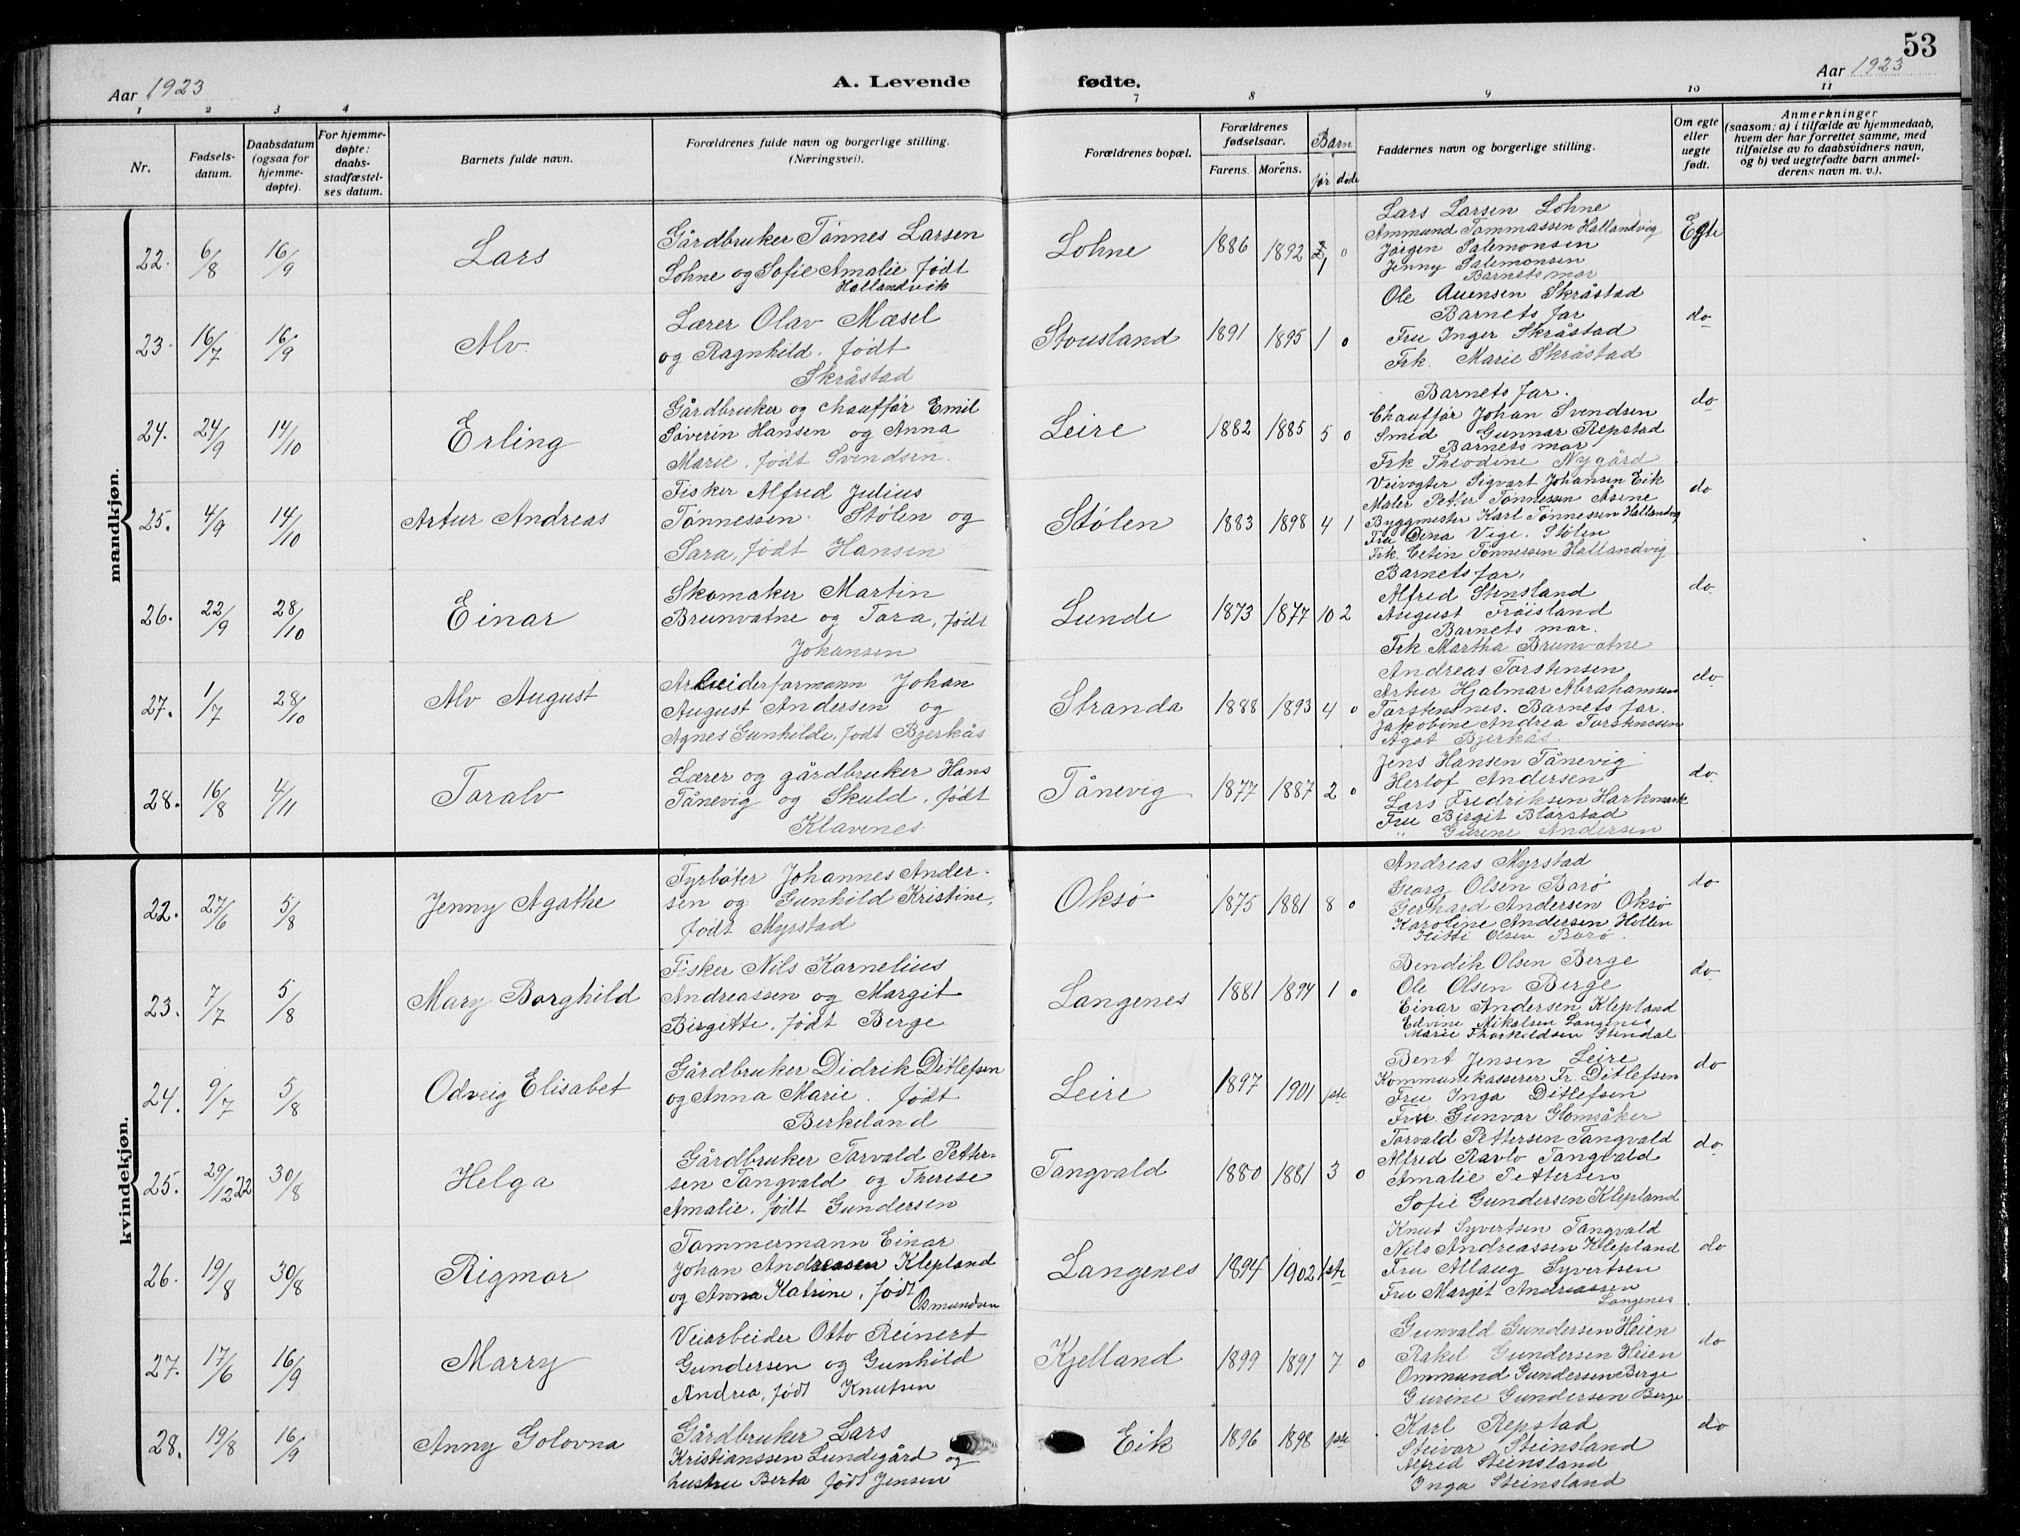 53
Aar 1923
A. Levende
fødte.
Aar 1923
1 2 3 4 7 8 9 10 11
Nr.
Fødsels-
datum.
Daabsdatum
(ogsaa for
hjemme-
døpte).
For hjemme-
døpte:
daabs-
stadfæstel-
ses datum.
Barnets fulde navn.
Forældrenes fulde navn og borgerlige stilling.
(Næringsvei).
Forældrenes bopæl.
Forældrenes
fødselsaar.
Farens. Morens.
Barn
før døde
Faddernes navn og borgerlige stilling.
Om egte
eller
uegte
født.
Anmerkninger
(saasom: a) i tilfælde av hjemmedaab,
hvem der har forrettet samme, med
tilføielse av to daabsvidners navn,
og b) ved uegtefødte barn anmel-
derens navn m. v.).
mandkjøn.
22. 6/8 16/9 Lars
Gårdbruker Tønnes Larsen
Lohne og Sofie Amalie født
Hallandvik
Lohne 1886 1892 1 0
Lars Larsen Lohne
Ammund Tammassen Hallandvig
Jørgen Salemonsen
Jenny Salemonsen
Barnets mor
Egte
23. 16/7 16/9 Alv
Lærer Olav Mæsel
og Ragnhild. født
Skråstad
Stousland 1891 1895 1 0
Ole Auensen Skråstad
Barnets far
Fru Inger Skråstad
Frk. Marie Skråstad
do
24. 24/9 14/10 Erling
Gårdbruker og chauffør Emil
Søverin Hansen og Anna
Marie. født Svendsen.
Leire 1882 1885 5 0
Barnets far.
Chauffør Johan Svendsen
Smed Gunnar Repstad
Barnets mor
Frk Theodine Nygård
do
25. 4/9 14/10 Artur Andreas
Fisker Alfred Julius
Tønnessen Stølen og
Sara, født Hansen
Stølen 1883 1898 4 1
Veivogter Sigvart Johansen Eik
Maler Petter Tønnessen Åsene
Byggmester Karl Tønnessen Hallandvig
Fru Dena Vige. Stølen
Frk. Tønnessen Hallandvig
do
26. 22/9 28/10 Einar
Skomaker Martin
Brunvatne og Tara, født
Johansen
Lunde 1873 1877 10 2
Barnets far.
Alfred Stensland
August Frøisland
Barnets mor.
Frk Martha Brunvatne
do
27. 1/7 28/10 Alv August
Arbeiderformann Johan
August Andersen og
Agnes Gunhilde, født Bjerkås
Stranda 1888 1893 4 0
Andreas Torstensen
Artur Hjalmar Abrahamsen
Torstensnes. Barnets far.
Jakobine Andrea Torstensen
Ågot Bjerkås.
do
28. 16/8 4/11 Toralv
Lærer og gårdbruker Hans
Tånevig og Skuld. født
Klavenes
Tånevig 1877 1887 2 0
Jens Hansen Tånevig
Herlof Andersen
Lars Fredriksen Harkmark
Fru Birgit Blørstad
" Gurine Andersen
do
kvindekjøn.
22. 27/6 5/8 Jenny Agathe
Fyrbøter Johannes Ander-
sen og Gunhild Kristine,
født Myrstad
Oksø 1875 1881 8 0
Andreas Myrstad
Georg Olsen Borø
Gerhard Andersen Oksø
Karoline Andersen Hellen
Hitti Olsen Borø.
do
23. 7/7 5/8 Mary Borghild
Fisker Nils Kornelius
Andreassen og Margit
Birgitte. født Berge
Langenes 1881 1894 1 0
Bendik Olsen Berge
Ole Olsen Berge
Einar Andersen Klepland
Edvine Mikalsen Langenes
Marie Thorkildsen Stendal
do
24. 9/7 5/8 Odveig Elisabet
Gårdbruker Didrik Ditlefsen
og Anna Marie. født
Berkeland
Leire 1897 1901 1ste
Bent Jensen Leire
Kommunekasserer Fr. Ditlefsen
Fru Inga Ditlefsen
Fru Gunvor Homsåker
do
25. 29/12 22 30/8 Helga
Gårdbruker Torvald Petter-
sen Tangvald og Therese
Amalie. født Gundersen
Tangvald 1880 1881 3 0
Torvald Pettersen Tangvald
Alfred Ravlo Tangvald
Amalie Pettersen
Sofie Gundersen Klepland
do
26. 19/8 30/8 Rigmor
Tømmermann Einar
Johan Andreassen Klepland
og Anna Katrine, født
Osmundsen
Langenes 1894 1902 1ste
Knut Syvertsen Tangvald
Nils Andreassen Klepland
Fru Allaug Syvertsen
Fru Margit Andreassen
Langenes
do
27. 17/6 16/9 Marry
Veiarbeider Otto Reinert
Gundersen og Gunhild
Andrea, født Knutsen
Kjelland 1899 1891 7 0
Gunvald Gundersen Heien
Rakel Gundersen Heien
Ommund Gundersen Berge
Gurine Gundersen Berge
do
28. 19/8 16/9 Anny Golovna
Gårdbruker Lars
Kristianssen Lundegård og
hustru Berta født Jensen
Eik 1896 1898 1ste
Karl Repstad
Steivar Steinsland
Alfred Steinsland
Inga Steinsland
do